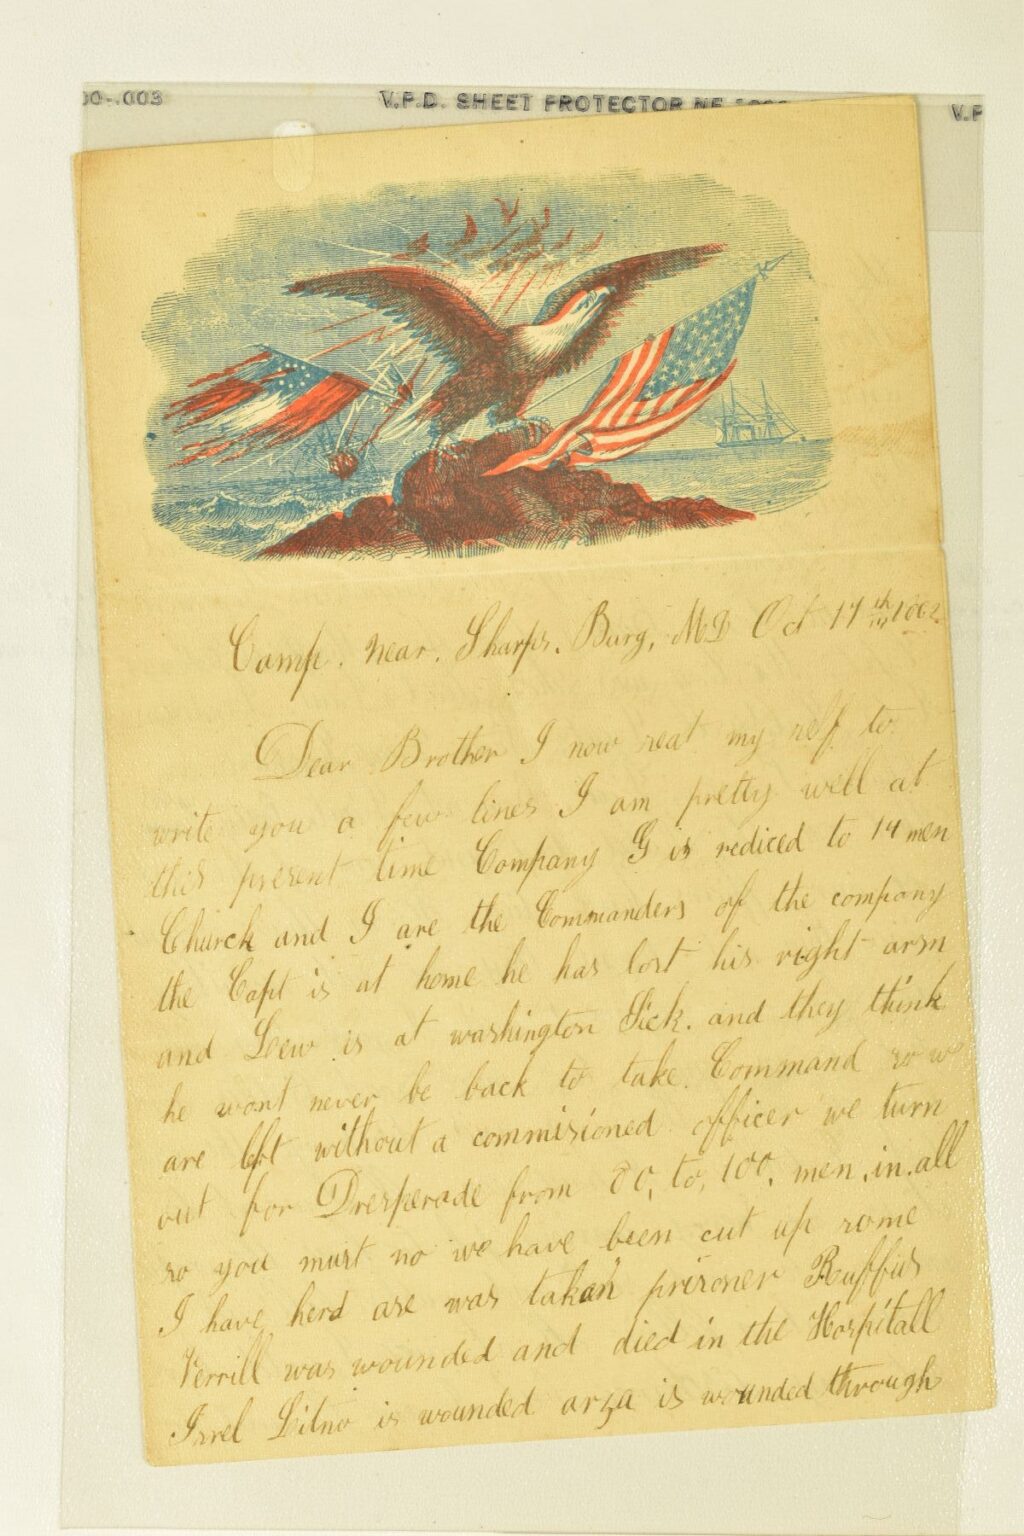 00-.003
V.P.D. SHEET PROTECTOR NE
V.P
Camp. near. Sharps. Burg, MD Oct 17th 1862
Dear Brother I now seat my self to
write you a few lines I am pretty well at
this present time Company G is rediced to 14 men
Church and I are the Commanders of the company
the Capt is at home he has lost his right arm
and Lew is at washington Sick. and they think
he wont never be back to take. Command so w
are left without a commisioned officer we turn
out for Dresperade from 80, to, 100, men, in. all
so you must no we have been cut up some
I have herd ase was taken prisoner Ruffus
Verrill was wounded and died in the Hospitall
is wounded arza is wounded through